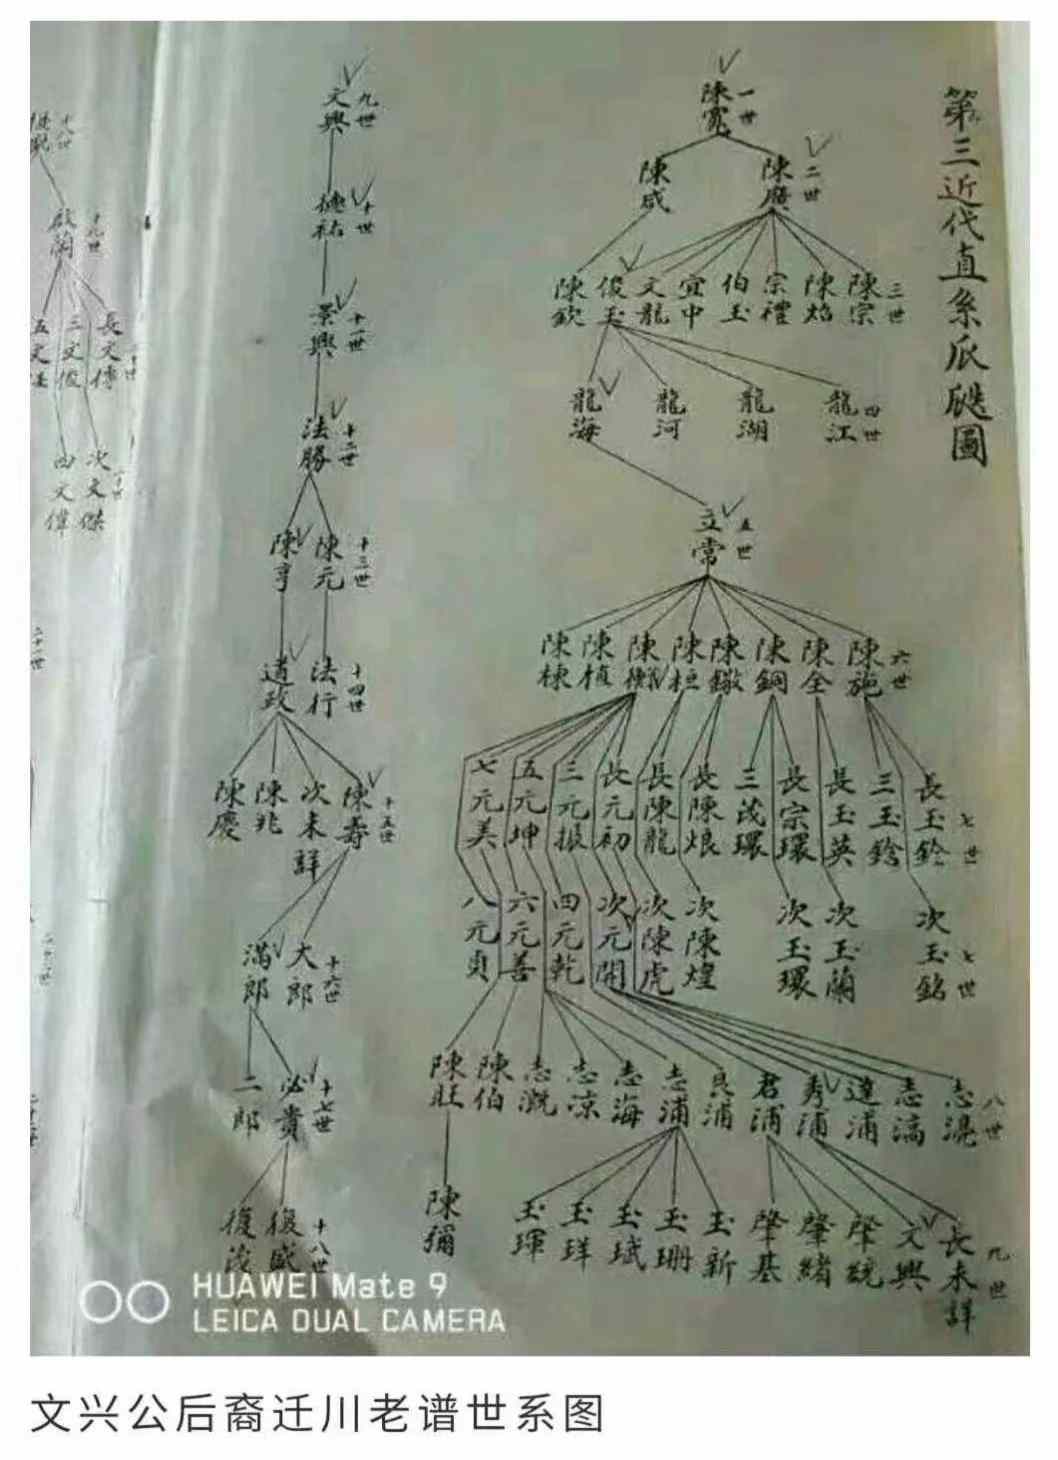 第三近代直系瓜瓞圖
一世
陳寬
二世
陳廣
陳咸
三世
陳宗
陳焰
宗禮
伯玉
宜中
文龍
俊玉
陳欽
四世
龍江
龍湖
龍河
龍海
五世
立常
六世
陳全
陳銅
陳桓
陳植
陳棟
七世
長玉鈴
三玉鎗
長玉英
長宗環
三茂環
長陳烺
長陳龍
長元初
三元振
五元坤
七元美
七世
次玉銘
次玉蘭
次玉環
次陳煌
次陳虎
次元開
四元乾
六元善
八元貞
八世
志滈
蓮浦
秀浦
君浦
良浦
志浦
志海
志涼
志溉
陳伯
陳旺
九世
長未詳
文興
肇統
肇緒
肇基
玉新
玉珊
玉珷
玉琲
玉琿
陳彌
九世
文興
十世
德祐
十一世
景興
十二世
法勝
十三世
陳元
陳亨
十四世
法行
道政
十五世
陳壽
次未詳
陳兆
陳慶
十六世
大郎
滿郎
十七世
必貴
二郎
十八世
復盛
復茂
十八世
十九世
啟蘭
長文傳
三文俊
五文
次文傑
四文偉
HUAWEI Mate 9
LEICA DUAL CAMERA
文兴公后裔迁川老谱世系图